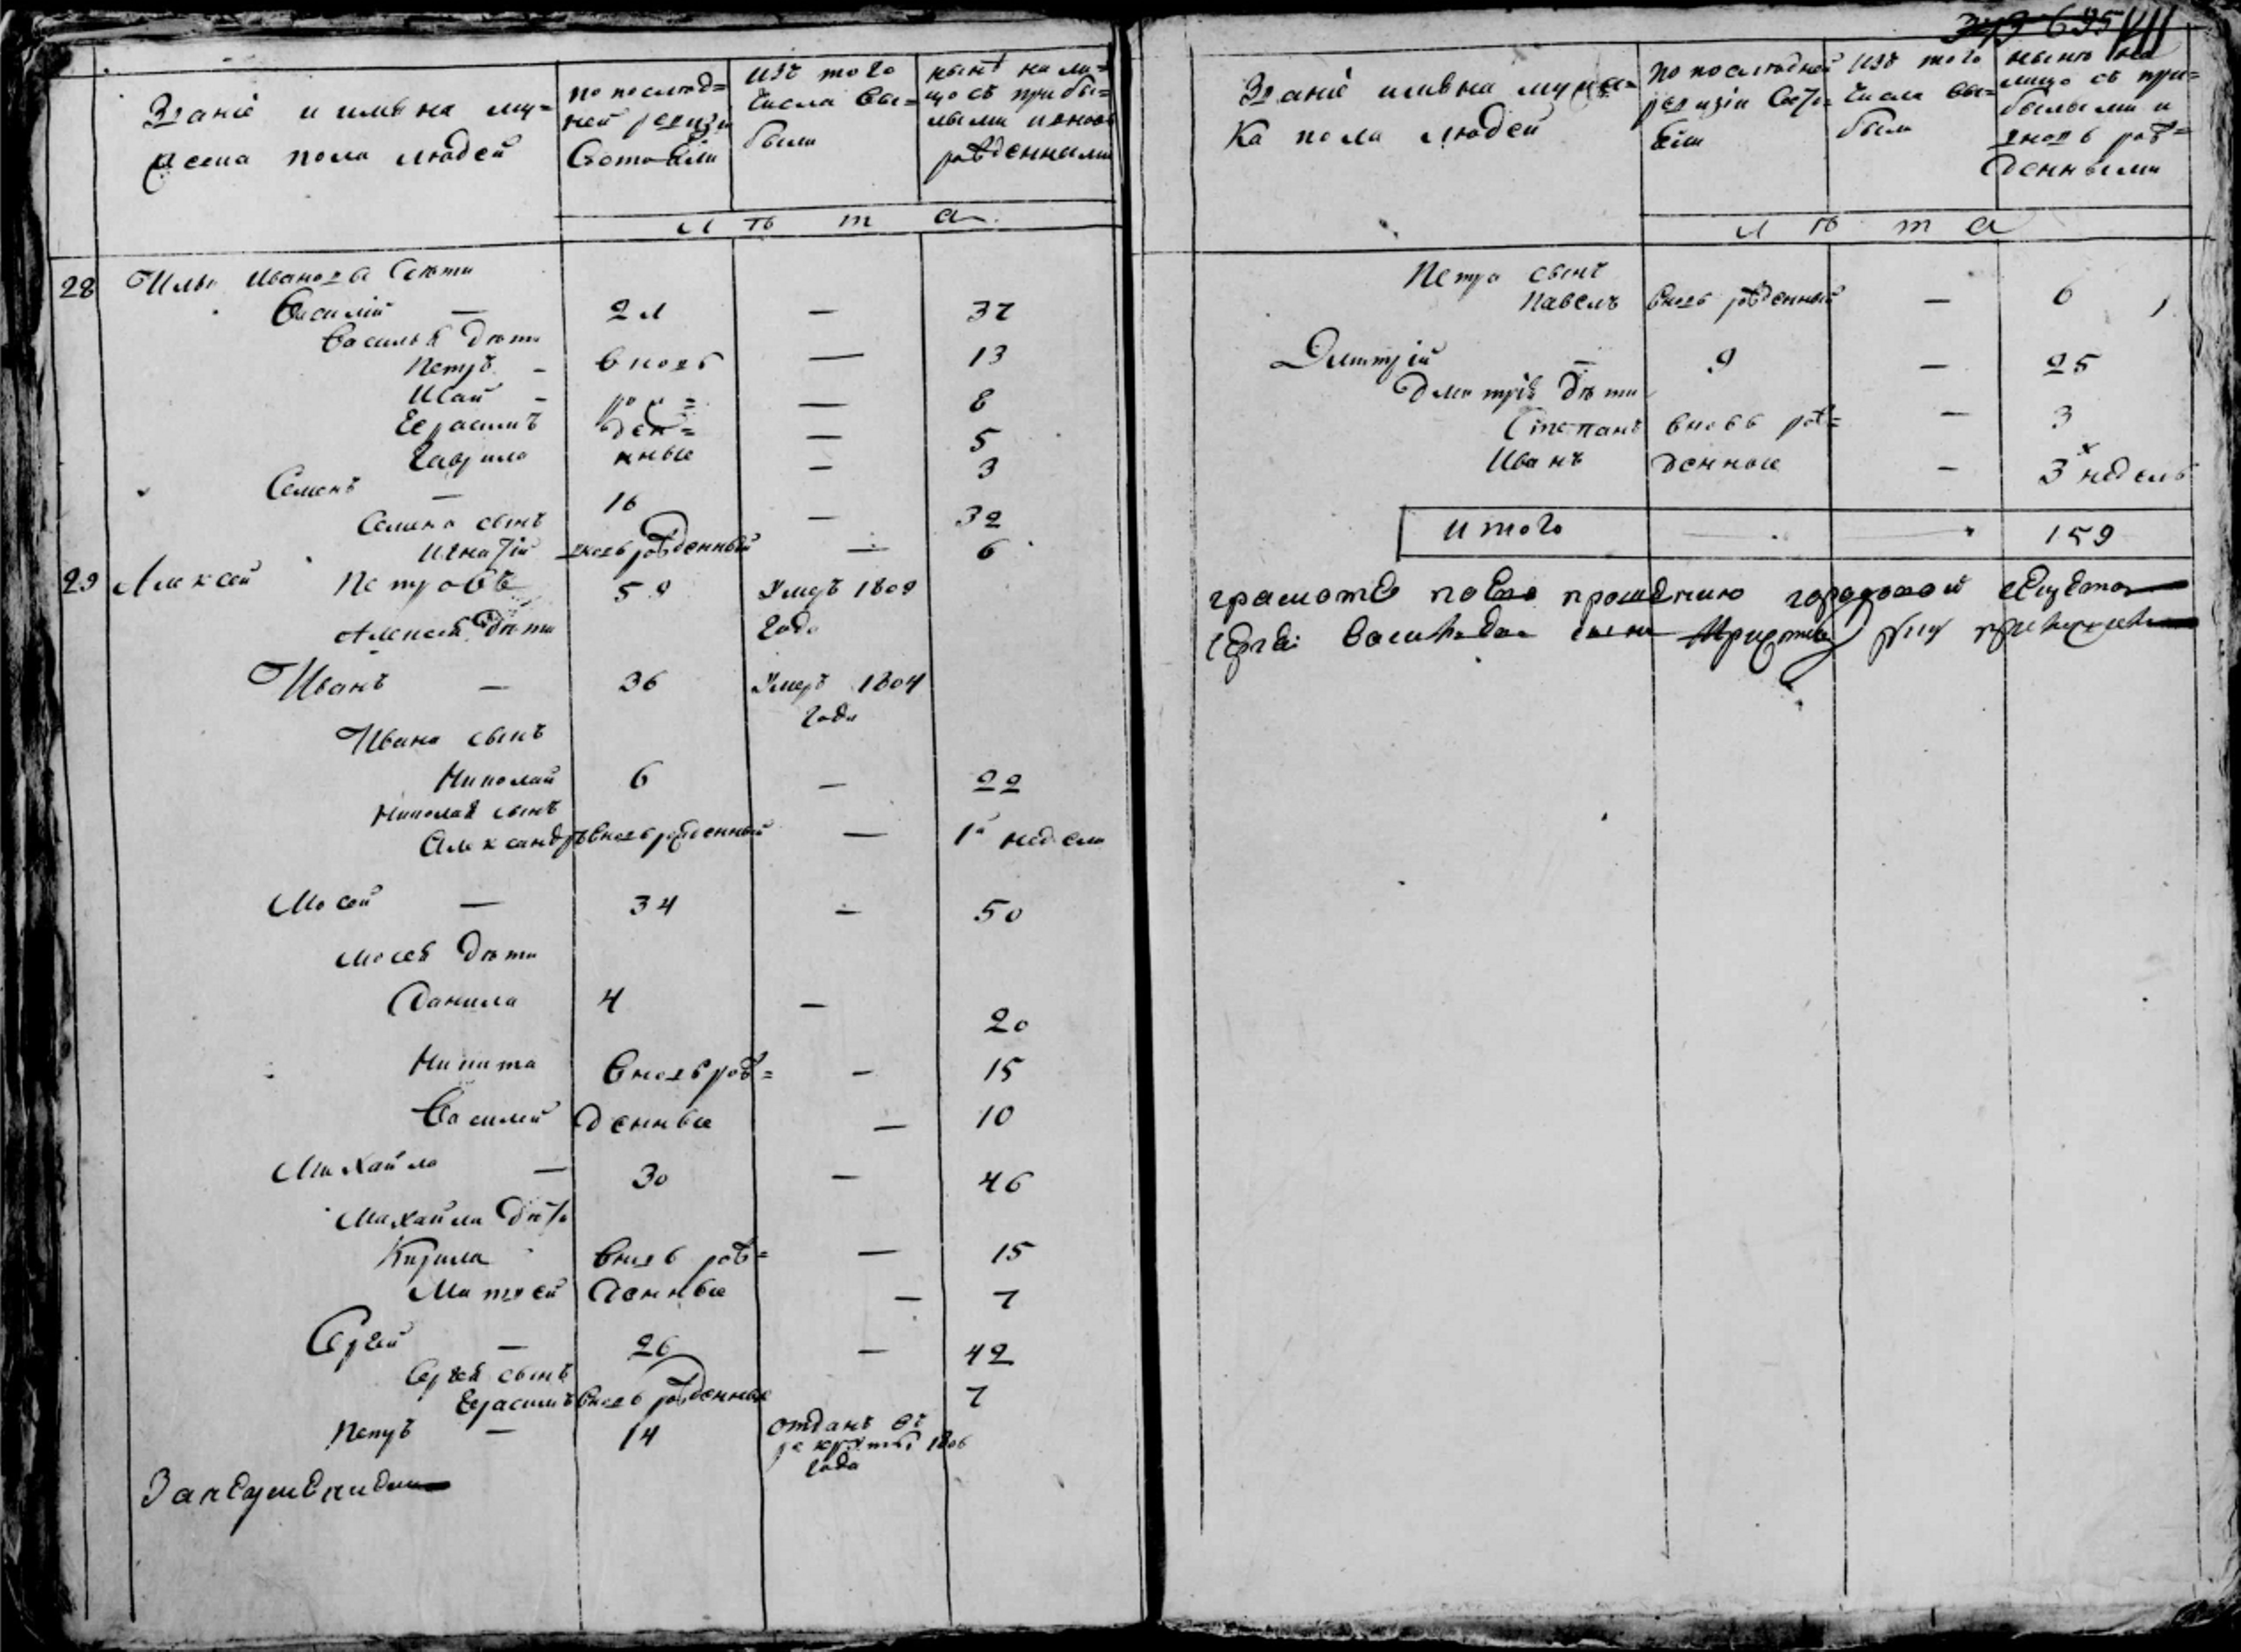 695
Званіе и имѣна му=
жеска пола людей
по послѣд=
ней ревизи
Состояли
изъ того
числа вы=
были
нынѣ на ли=
цо съ прибы=
лыми и вновь
рожденными
лѣта
28 Ильи Иванова дѣти
Василій — 21 — 37
Василья дѣти
Петръ - вновь — 13
Исай - рож= — 8
Герасимъ ден= — 5
Гаврило ные — 3
Семенъ — 16 — 32
Семена сынъ
Игнатій вновь рожденный — 6
29 Алексей Петровъ 59 Умеръ 1809
года
Алексея дѣти
Иванъ — 36 Умеръ 1804
года
Ивана сынъ
Николай 6 — 22
Николая сынъ
Александръ вновь рожденный — 1а недели
Мосей — 34 — 50
Мосея дѣти
Данила 4 — 20
Никита вновь рож= — 15
Василей денные — 10
Михайла — 30 — 46
Михайлы дѣти
Кирила вновь рож= — 15
Матвей денные — 7
Сергей — 26 — 42
Сергея сынъ
Герасимъ вновь рожденные 7
Петръ — 14 отданъ въ
рекруты 1806
года
Званіе имѣна мужес=
ка пола людей
по последней
ревизіи Состо=
яли
изъ того
числа вы=
были
нынѣ на
лицо съ при=
былыми и
вновь рож=
денными
лѣта
Петра сынъ
Павелъ вновь рожденный — 6
Дмитрій — 9 — 25
Дмитрія дѣти
Степанъ вновь рож= — 3
Иванъ денные — 3х недель
итого — — 159
грамотѣ по его прошению